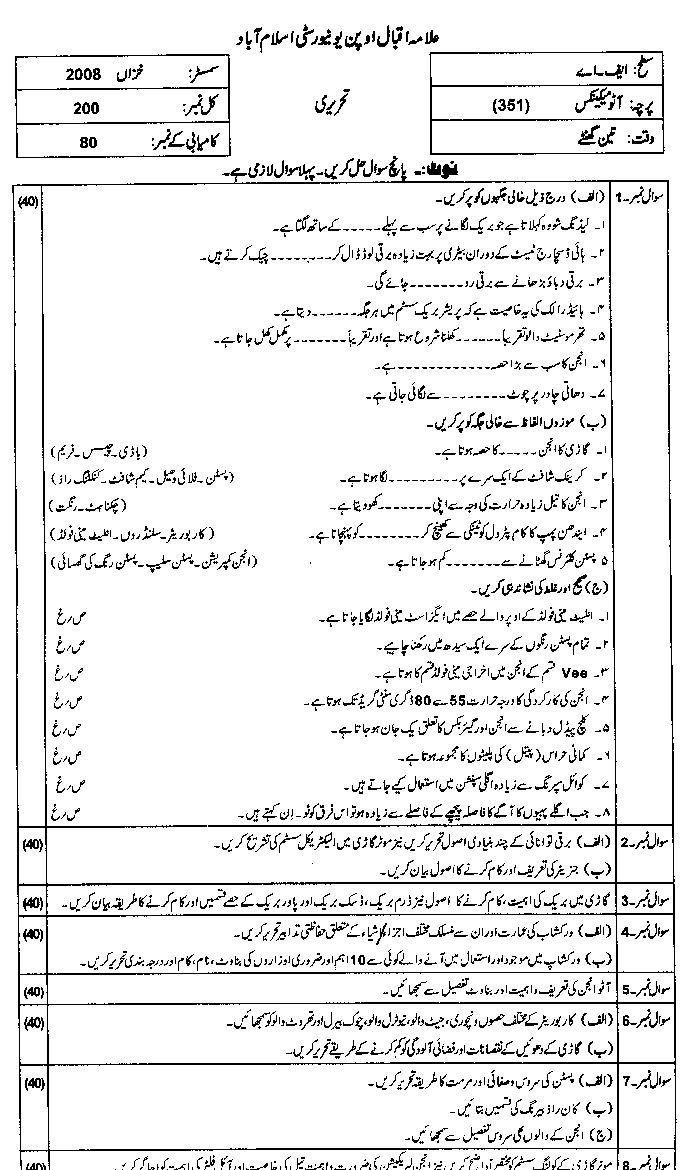 علامہ اقبال اوپن یونیورسٹی اسلام آباد
سطح: ایف۔اے
تحریری
سمسٹر: خزاں 2008
پرچہ: آٹو میکینکس (351)
کل نمبر: 200
وقت: تین گھنٹے
کامیابی کے نمبر: 80
نوٹ:۔ پانچ سوال حل کریں۔ پہلا سوال لازمی ہے۔
سوال نمبر۔1 (الف) درج ذیل خالی جگہوں کو پر کریں۔ (40)
۱۔ لیڈنگ شو وہ کہلاتا ہے جو بریک لگانے پر سب سے پہلے ۔۔۔۔۔ کے ساتھ لگتا ہے۔
۲۔ ہائی ڈسچارج ٹیسٹ کے دوران بیٹری پر بہت زیادہ برقی لوڈ ڈال کر ۔۔۔۔۔۔۔۔ چیک کرتے ہیں۔
۳۔ برقی دباؤ بڑھانے سے برقی رو ۔۔۔۔۔۔۔۔ جائے گی۔
۴۔ ہائیڈرالک کی یہ خاصیت ہے کہ پریشر بریک سسٹم میں ہر جگہ ۔۔۔۔۔۔ دیتا ہے۔
۵۔ تھرموسٹیٹ والو تقریباً ۔۔۔۔۔۔ کھلنا شروع ہوتا ہے اور تقریباً ۔۔۔۔۔۔۔ پر مکمل کھل جاتا ہے۔
۶۔ انجن کا سب سے بڑا حصہ ۔۔۔۔۔۔۔۔۔۔۔۔ ہے۔
۷۔ دھاتی چادر پر چوٹ ۔۔۔۔۔۔۔۔ سے لگائی جاتی ہے۔
(ب) موزوں الفاظ سے خالی جگہ کو پر کریں۔
۱۔ گاڑی کا انجن ۔۔۔۔۔ کا حصہ ہوتا ہے۔ (باڈی۔چیسس۔فریم)
۲۔ کرینک شافٹ کے ایک سرے پر ۔۔۔۔۔۔۔۔۔ لگا ہوتا ہے۔ (پسٹن۔فلائی وھیل۔کیم شافٹ۔کنکٹنگ راڈ)
۳۔ انجن کا تیل زیادہ حرارت کی وجہ سے اپنی ۔۔۔۔۔۔۔ کھو دیتا ہے۔ (چکناہٹ۔رنگت)
۴۔ ایندھن پمپ کا کام پٹرول کو ٹینکی سے کھینچ کر ۔۔۔۔۔۔۔۔ کو پہنچانا ہے۔ (کاربوریٹر۔سلنڈروں۔انلیٹ مینی فولڈ)
۵ پسٹن کلئرنس گھٹانے سے ۔۔۔۔۔۔۔ کم ہو جاتا ہے۔ (انجن کمپریشن۔پسٹن سلیپ۔پسٹن رنگ کی گھسائی)
(ج) صحیح اور غلط کی نشاندہی کریں۔
۱۔ انلیٹ مینی فولڈ کے اوپر والے حصے میں ایگزاسٹ مینی فولڈ لگایا جاتا ہے۔ ص/غ
۲۔ تمام پسٹن رنگوں کے سرے ایک سیدھ میں رکھنا چاہیے۔ ص/غ
۳۔ Vee قسم کے انجن میں اخراجی مینی فولڈ قسم کا ہوتا ہے۔ ص/غ
۴۔ انجن کی کارکردگی کا درجہ حرارت 55 سے 80 ڈگری سنٹی گریڈ تک ہوتا ہے۔ ص/غ
۵۔ کلچ پیڈل دبانے سے انجن اور گیئر بکس کا تعلق یک جان ہو جاتا ہے۔ ص/غ
۶۔ کمانی حراس (پیتل) کی پلیٹوں کا مجموعہ ہوتا ہے۔ ص/غ
۷۔ کوائل سپرنگ سے زیادہ اگلی سپنشن میں استعمال کیے جاتے ہیں۔ ص/غ
۸۔ جب اگلے پہیوں کا آگے کا فاصلہ پیچھے کے فاصلے سے زیادہ ہو تو اس فرق کو ٹو۔اِن کہتے ہیں۔ ص/غ
سوال نمبر۔2 (الف) برقی توانائی کے چند بنیادی اصول تحریر کریں نیز موٹر گاڑی میں الیکٹریکل سسٹم کی تشریح کریں۔ (40)
(ب) جنریٹر کی تعریف اور کام کرنے کا اصول بیان کریں۔
سوال نمبر۔3 گاڑی میں بریک کی اہمیت، کام کرنے کا اصول نیز ڈرم بریک، ڈسک بریک اور پاور بریک کے حصے قسمیں اور کام کرنے کا طریقہ بیان کریں۔ (40)
سوال نمبر۔4 (الف) ورکشاپ کی عمارت اور ان سے منسلک مختلف اجزا/اشیاء کے متعلق حفاظتی تدابیر تحریر کریں۔ (40)
(ب) ورکشاپ میں موجود اور استعمال میں آنے والے کوئی سے 10 اہم اور ضروری اوزاروں کی بناوٹ، نام، کام اور درجہ بندی تحریر کریں۔
سوال نمبر۔5 آٹو انجن کی تعریف و اہمیت اور بناوٹ تفصیل سے سمجھائیں۔ (40)
سوال نمبر۔6 (الف) کاربوریٹر کے مختلف حصوں ونچوری، جیٹ والو، نیوٹرل والو، چوک بیرل اور تھروٹ والو کو سمجھائیں۔ (40)
(ب) گاڑی کے دھوئیں کے نقصانات اور فضائی آلودگی کو کم کرنے کے طریقے تحریر کریں۔
سوال نمبر۔7 (الف) پسٹن کی سروس و صفائی اور مرمت کا طریقہ تحریر کریں۔ (40)
(ب) کان راڈ بیرنگ کی قسمیں بتائیں۔
(ج) انجن کے والوں کی سروس تفصیل سے سمجھائیں۔
سوال نمبر۔8 موٹر گاڑی کے کولنگ سسٹم کو مختصراً واضح کریں نیز انجن لبریکیشن کی ضرورت و اہمیت تیل کی خاصیت اور آئل فلٹر کی اہمیت کو اجاگر کریں۔ (40)